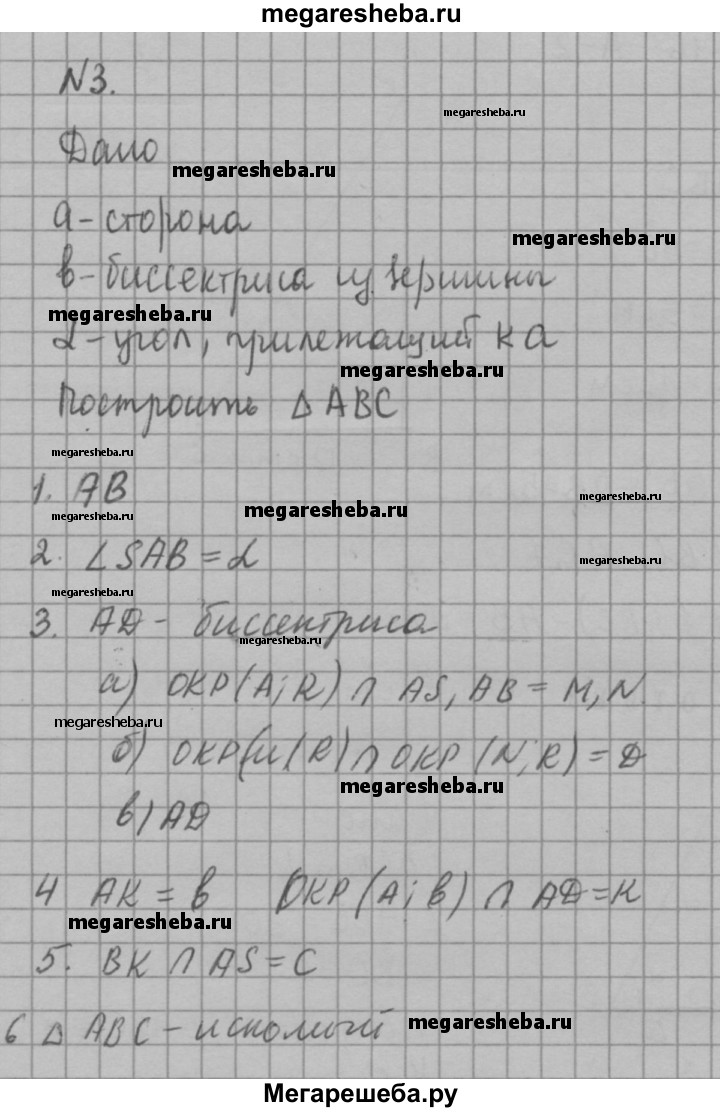 megaresheba.ru
N3.
megaresheba.ru
Дано
megaresheba.ru
a - сторона
megaresheba.ru
в - биссектриса из вершины
megaresheba.ru
α - угол, прилежащий к a
megaresheba.ru
Построить Δ ABC
megaresheba.ru
1. AB
megaresheba.ru
megaresheba.ru
megaresheba.ru
2. ∠SAB = α
megaresheba.ru
megaresheba.ru
3. AD - биссектриса
megaresheba.ru
а) ОКР(A; R) ∩ AS, AB = M, N.
megaresheba.ru
б) ОКР(M; R) ∩ ОКР (N; R) = D
megaresheba.ru
в) AD
4 AK = в ОКР(A; в) ∩ AD = K
megaresheba.ru
5. BK ∩ AS = C
megaresheba.ru
6 Δ ABC - искомый
Мегарешеба.ру